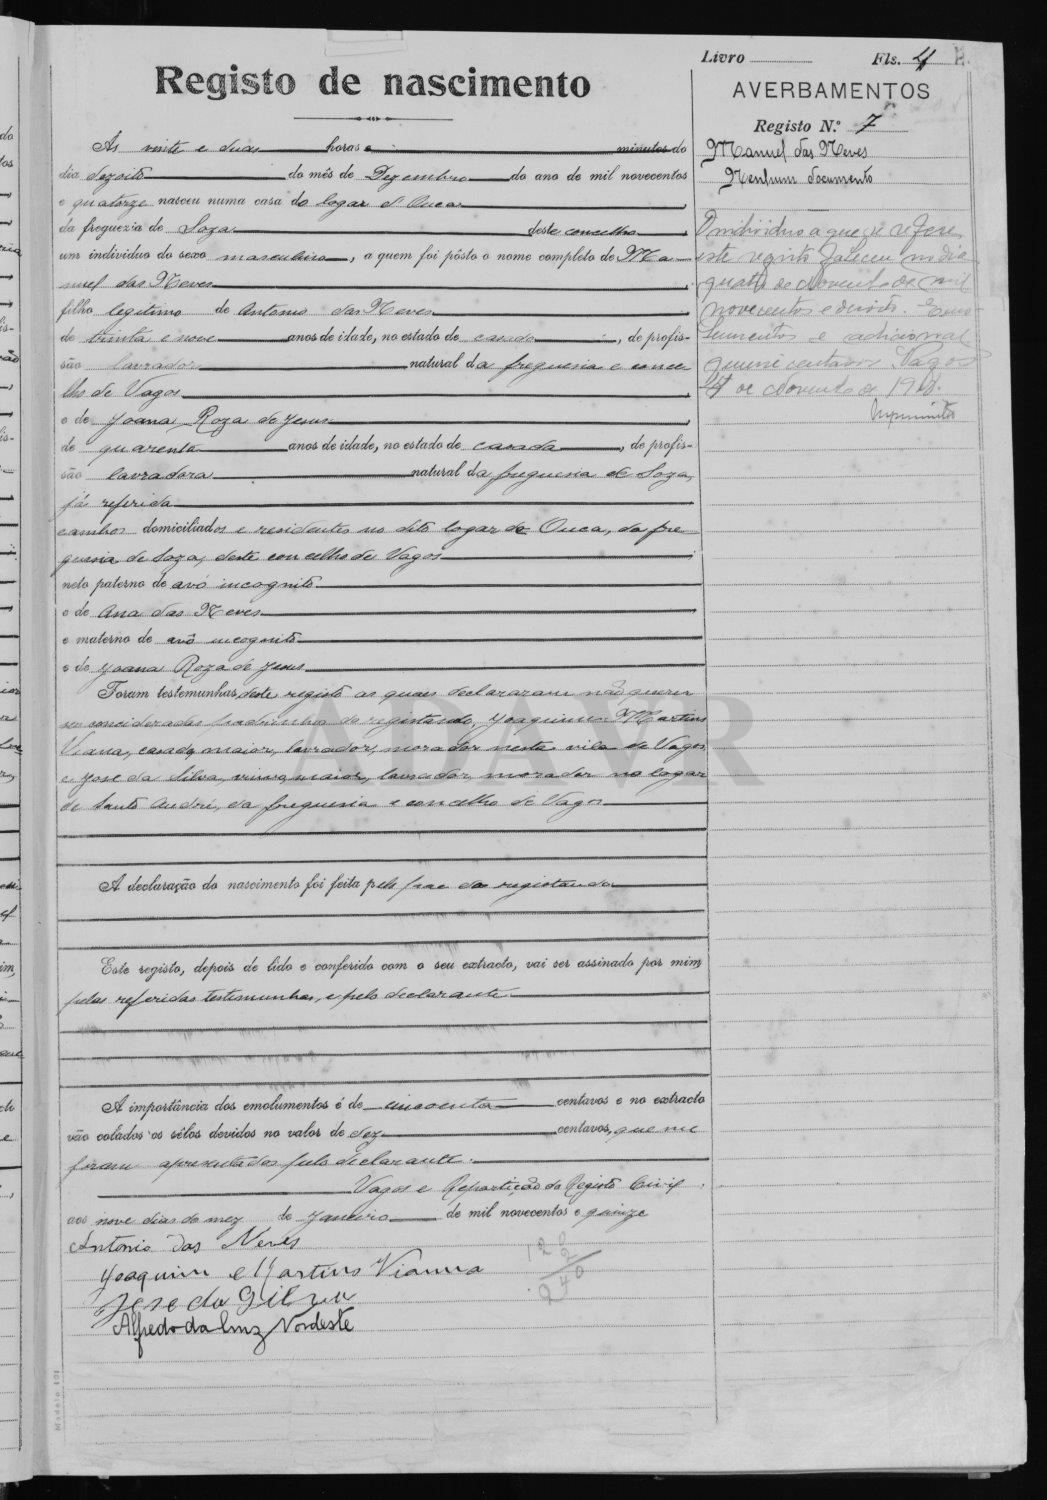 Registo de nascimento
Ás vinte e duas horas e minutos do
dia dezoito do mês de Dezembro do ano de mil novecentos
e quatorze nasceu numa casa do logar d'Ouca
da freguezia de Soza deste concelho
um individuo do sexo masculino, a quem foi pôsto o nome completo de Ma-
nuel das Neves
filho legitimo de Antonio das Neves
de trinta e nove anos de idade, no estado de casado, de profis-
são lavrador natural da freguesia e conce
lho de Vagos
e de Joana Roza de Jesus
de quarenta anos de idade, no estado de casada, de profis-
são lavradora natural da freguesia de Soza,
já referida
ambos domiciliados e residentes no dito logar de Ouca, da fre
guesia de Soza, deste concelho de Vagos
neto paterno de avô incognito
e de Ana das Neves
e materno de avô incognito
e de Joana Roza de Jesus
Foram testemunhas deste registo as quaes declararam não querer
ser consideradas padrinhos do registando, Joaquim Martins
Viana, casado, maior, lavrador, morador nesta vila de Vagos
e Jose da Silva, viuvo, maior, lavrador, morador no logar
de Santo André, da freguesia e concelho de Vagos
A declaração do nascimento foi feita pelo pae do registando
Este registo, depois de lido e conferido com o seu extracto, vai ser assinado por mim,
pelas referidas testemunhas, e pelo declarante.
A importância dos emolumentos é de cincoenta centavos e no extracto
vão colados os sêlos devidos no valor de dez centavos, que me
foram apresentados pelo declarante.
Vagos e Repartição do Registo Civil,
aos nove dias do mez de Janeiro de mil novecentos e quinze
Antonio das Neves
Joaquim Martins Vianna
Jose da Silva
Alfredo da Luz Nordeste
Modelo 101
Livro Fls. 4
AVERBAMENTOS
Registo N.º 7
Manuel das Neves
Nenhum documento
O individuo a que se refere
este registo faleceu no dia
quatro de Novembro de mil
novecentos e dezoito. Emo-
lumentos e adicional
quinze centavos. Vagos
de Novembro de 1918.
ADAVR